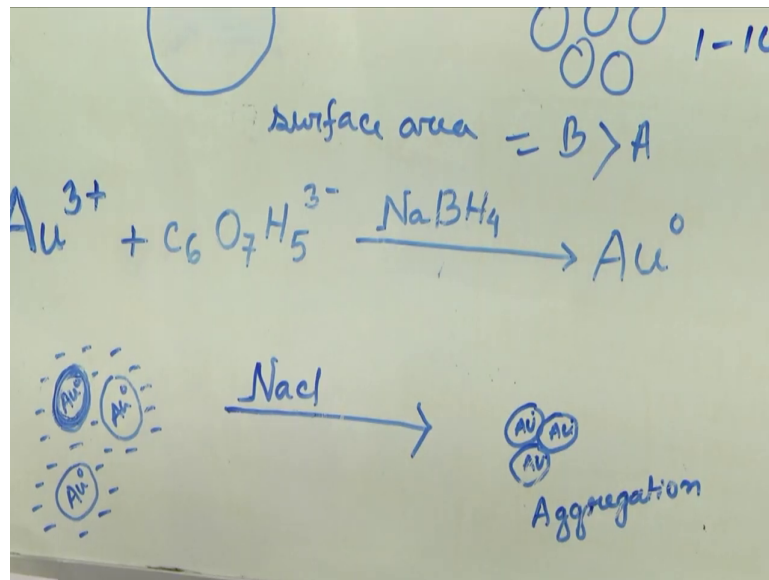 1-10
surface area = B > A
Au³⁺ + C₆O₇H₅³⁻ NaBH₄ → Au⁰
Au⁰ Au⁰ NaCl → Au Au
Au⁰ Au
Aggregation